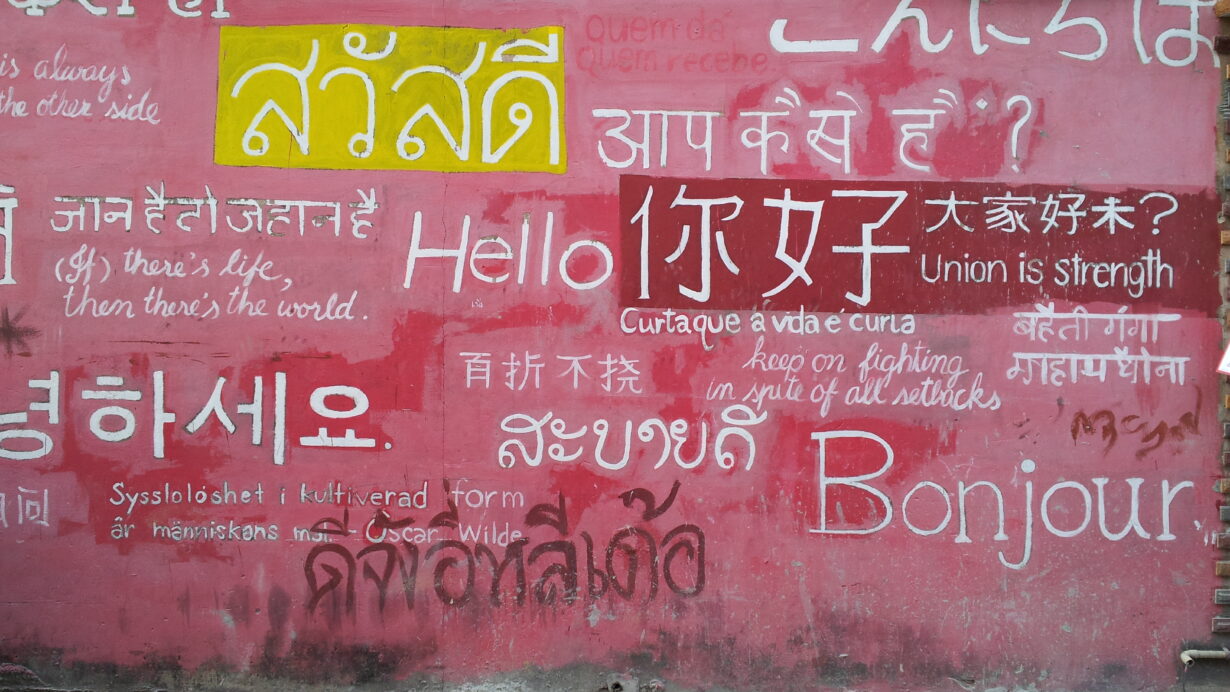 สวัสดี
quem da
quem recebe
こんにちは
is always
the other side
आप कैसे हैं ?
जान है तो जहान है
(If) there's life,
then there's the world.
Hello
你好
大家好未?
Union is strength
Curta que a vida é curta
बहती गंगा
百折不挠
keep on fighting
in spite of all setbacks
녕하세요.
สะบายดี
Bonjour.
Sysslolöshet i kultiverad form
är människans mål - Oscar Wilde